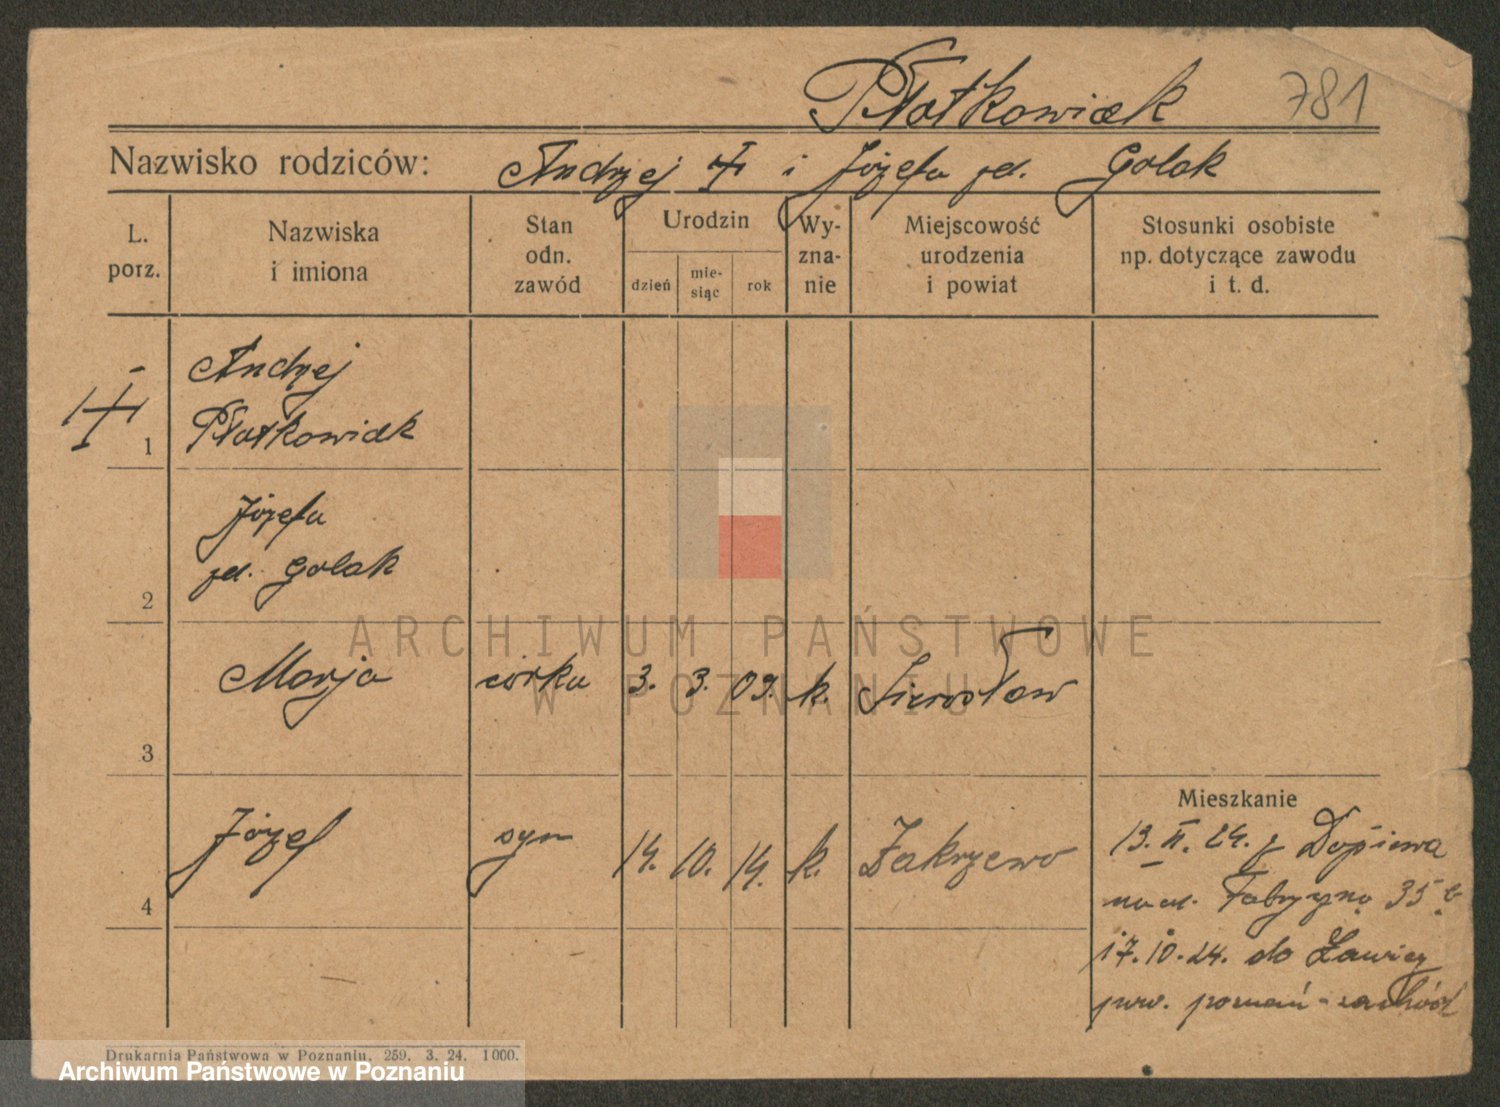 Płotkowiak 781
Nazwisko rodziców: Andrzej i Józefa zd. Golak
L. porz.
Nazwiska i imiona
Stan odn. zawód
Urodzin
dzień
mie-
siąc
rok
Wy-
zna-
nie
Miejscowość
urodzenia
i powiat
Stosunki osobiste
np. dotyczące zawodu
i t. d.
Andrzej
Płotkowiak
1
Józefa
zd. Golak
2
Marja córka 3. 3. 09. k. Sierosław
3
Józef syn 14. 10. 14. k. Zakrzewo
4
Mieszkanie
13. II. 24. z Dopiewa
na ul. Fabryczną 35
17.10.24. do Ławicy
pow. poznań-zachód
Drukarnia Państwowa w Poznaniu. 259. 3. 24. 1000.
ARCHIWUM PAŃSTWOWE
W POZNANIU
Archiwum Państwowe w Poznaniu